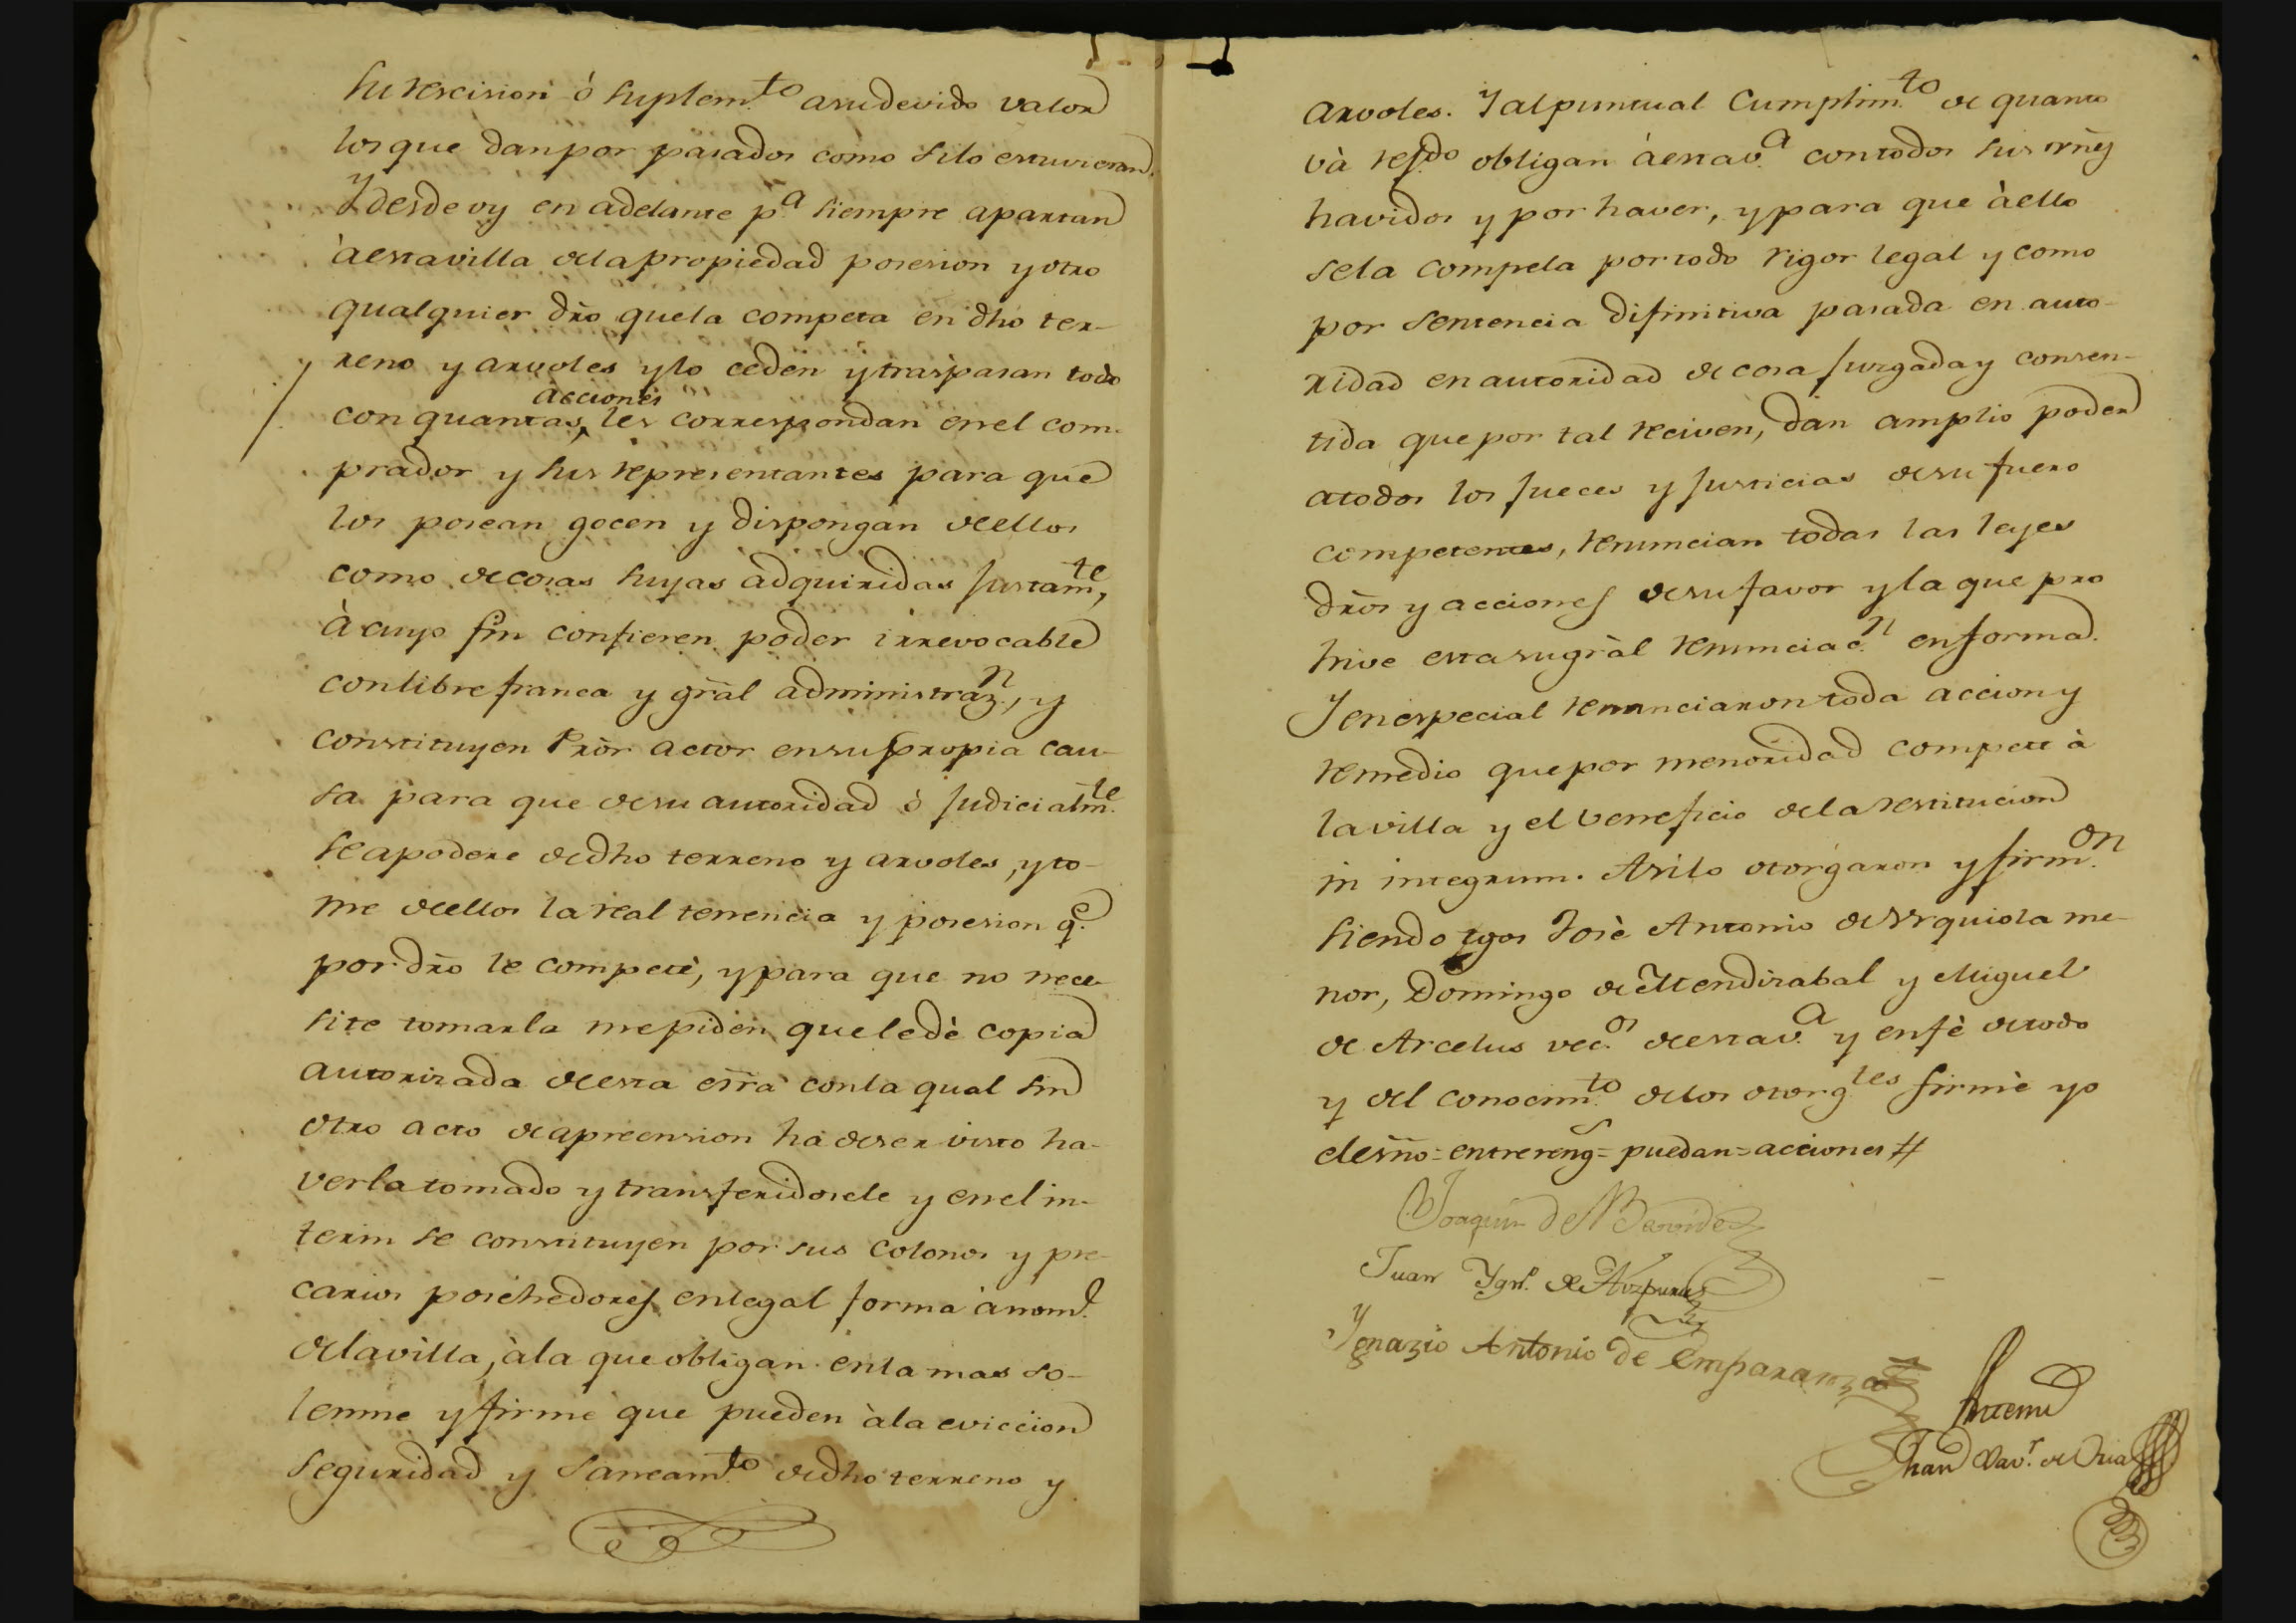 su rescision ó suplem.to a su devido valor
los que dan por pasados como si lo estuvieran,
y desde oy en adelante p.a siempre apartan
à esta villa de la propiedad posesion y otro
qualquier dr̃o que la competa en dho ter-
reno y arvoles y lo ceden y traspasan todo
con quantas acciones les correspondan en el com-
prador y sus representantes para que
los posean gocen y dispongan de ellos
como de cosas suyas adquiridas justam.te,
à cuyo fin confieren poder irrevocable
con libre franca y gr̃al administraz.n, y
constituyen Pr̃or actor en su propia cau-
sa para que de su autoridad ò judicialm.te
se apodere de dho terreno y arvoles, y to-
me de ellos la real tenencia y posesion q.e
por dr̃o le compete, y para que no nece-
site tomarla me piden que le dè copia
autorizada de esta esr̃a con la qual sin
otro acto de apreension ha de ser visto ha-
verla tomado y transferidosele y en el in-
terin se constituyen por sus colonos y pre-
carios posehedores en legal forma à nom.e
de la villa, à la que obligan en la mas so-
lemne y firme que pueden à la eviccion
seguridad y saneam.to de dho terreno y
arvoles. Y al puntual cumplim.to de quanto
và ref.do obligan à esta v.a con todos sus vñes
havidos y por haver, y para que à ello
se la compela por todo rigor legal y como
por sentencia difinitiva pasada en auto-
ridad en autoridad de cosa juzgada y consen-
tida que por tal reciven, dan amplio poder
a todos los jueces y justicias de su fuero
competentes, renuncian todas las leyes
dr̃os y acciones de su favor y la que pro
hive esta su gr̃al renunciac.n en forma.
Y en especial renunciaron toda accion y
remedio que por menoridad compete à
la villa y el veneficio de la restitucion
in integrum. Asi lo otorgaron y firm.on
siendo tgos Josè Antonio de Urquiola me-
nor, Domingo de Mendizabal y Miguel
de Arcelus vec.os de esta v.a y en fè de todo
y del conocim.to de los otorg.tes firmè yo
el esñno = entrereng.s = puedan = acciones #
Joaquin de
Juan Ygn.o de Aizpurua
Ygnazio Antonio de Emparanza
Antemi
Juan Bav.ta de Oria